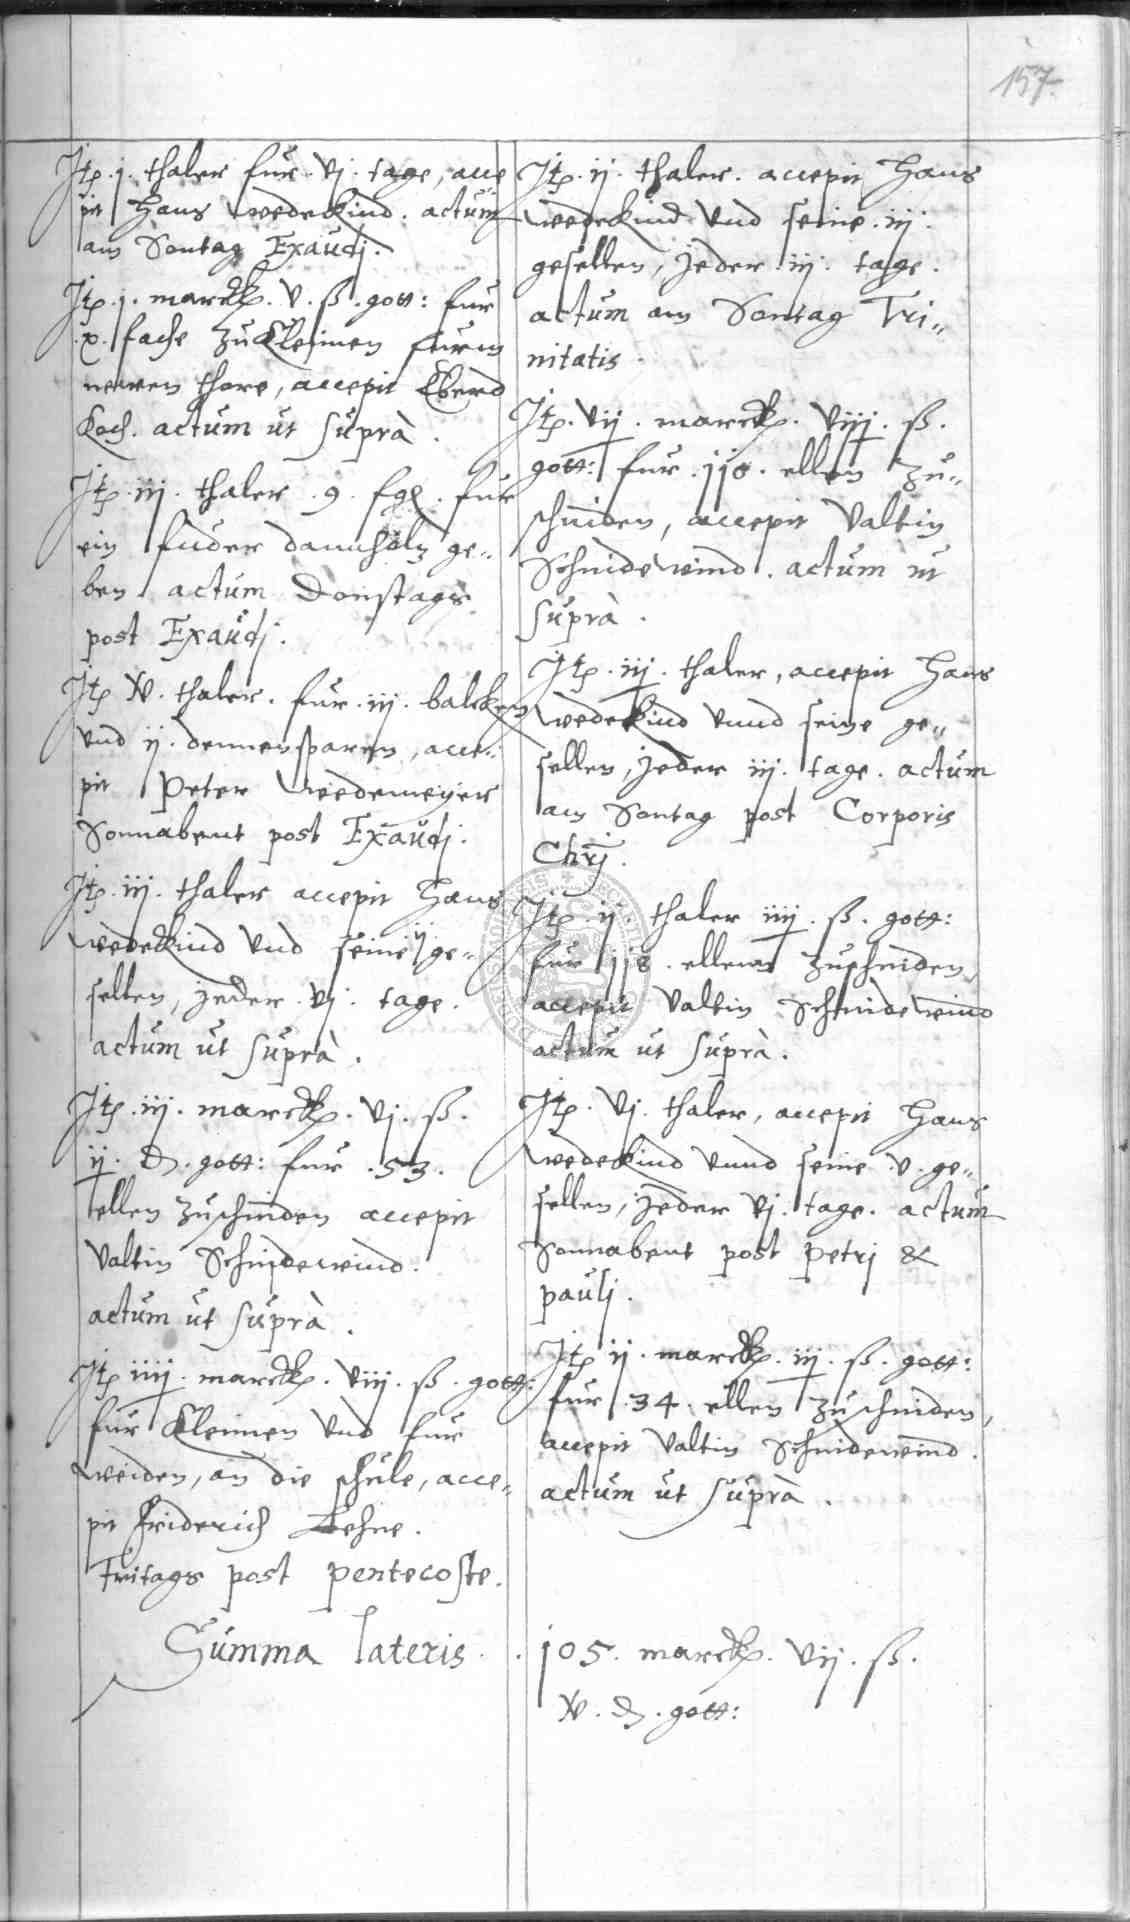 157.
Itē. j. thaler fur. vj. tage, acce
pit Hans Wedekind. actum
am Sontag Exaudj.
Itē. j. marck. v. ß. gott: fur
.x. fache zu Kleimen furm
newen thore, accepit Eberd
Koch. actum ut suprà.
Itē. iij. thaler .9. fgl. fur
ein fuder dannholtz ge„
ben actum Donstags
post Exaudj.
Itē xv. thaler. fur. iij. balcken
vnd ij. dennensparen, acce„
pit Peter Wedemeijer
Sonnabent post Exaudj.
Itē. iij. thaler accepit Hans
Wedekind vnd seine ij ge„
sellen, jeder. vj. tage.
actum ut suprà.
Itē. iij. marck. vj. ß.
ij. d. gott: fur .53.
ellen zuschniden accepit
Valtin Schnidewind.
actum ut suprà.
Itē iiij. marck. viij. ß. gott:
fur Kleimen vnd fur
weiden, an die schule, acce„
pit Friderich Lehne.
Fritags post pentecoste.
Summa lateris.
Itē. ij. thaler. accepit Hans
Wedekind vnd seine. iij.
gesellen, jeder. iij. tage.
actum am Sontag Tri„
nitatis.
Itē. vij. marck. viij. ß.
gott: fur. jj8. ellen zu„
schniden, accepit Valtin
Schnidewind. actum ut
suprà.
Itē. iij. thaler, accepit Hans
Wedekind vnnd seine ge„
sellen, jeder iij. tage. actum
am Sontag post Corporis
Chrj.
Itē. ij. thaler iiij. ß. gott:
fur jj8. ellenn zuschniden,
accepit Valtin Schnidewind
actum ut suprà.
Itē. vj. thaler, accepit Hans
Wedekind vnnd seine .v. ge„
sellen, jeder vj. tage. actum
Sonnabent post petrj &
paulj.
Itē ij. marck. iij. ß. gott:
fur .34. ellen zuschniden,
accepit Valtin Schnidewind.
actum ut suprà.
. j05. marck. vij. ß.
xv. d. gott: